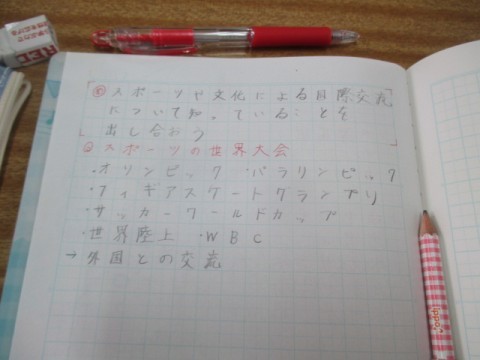 め スポーツや文化による国際交流
について知っていることを
出し合おう
◎スポーツの世界大会
・オリンピック ・パラリンピック
・フィギアスケートグランプリ
・サッカーワールドカップ
・世界陸上 ・WBC
→外国との交流
ippo!